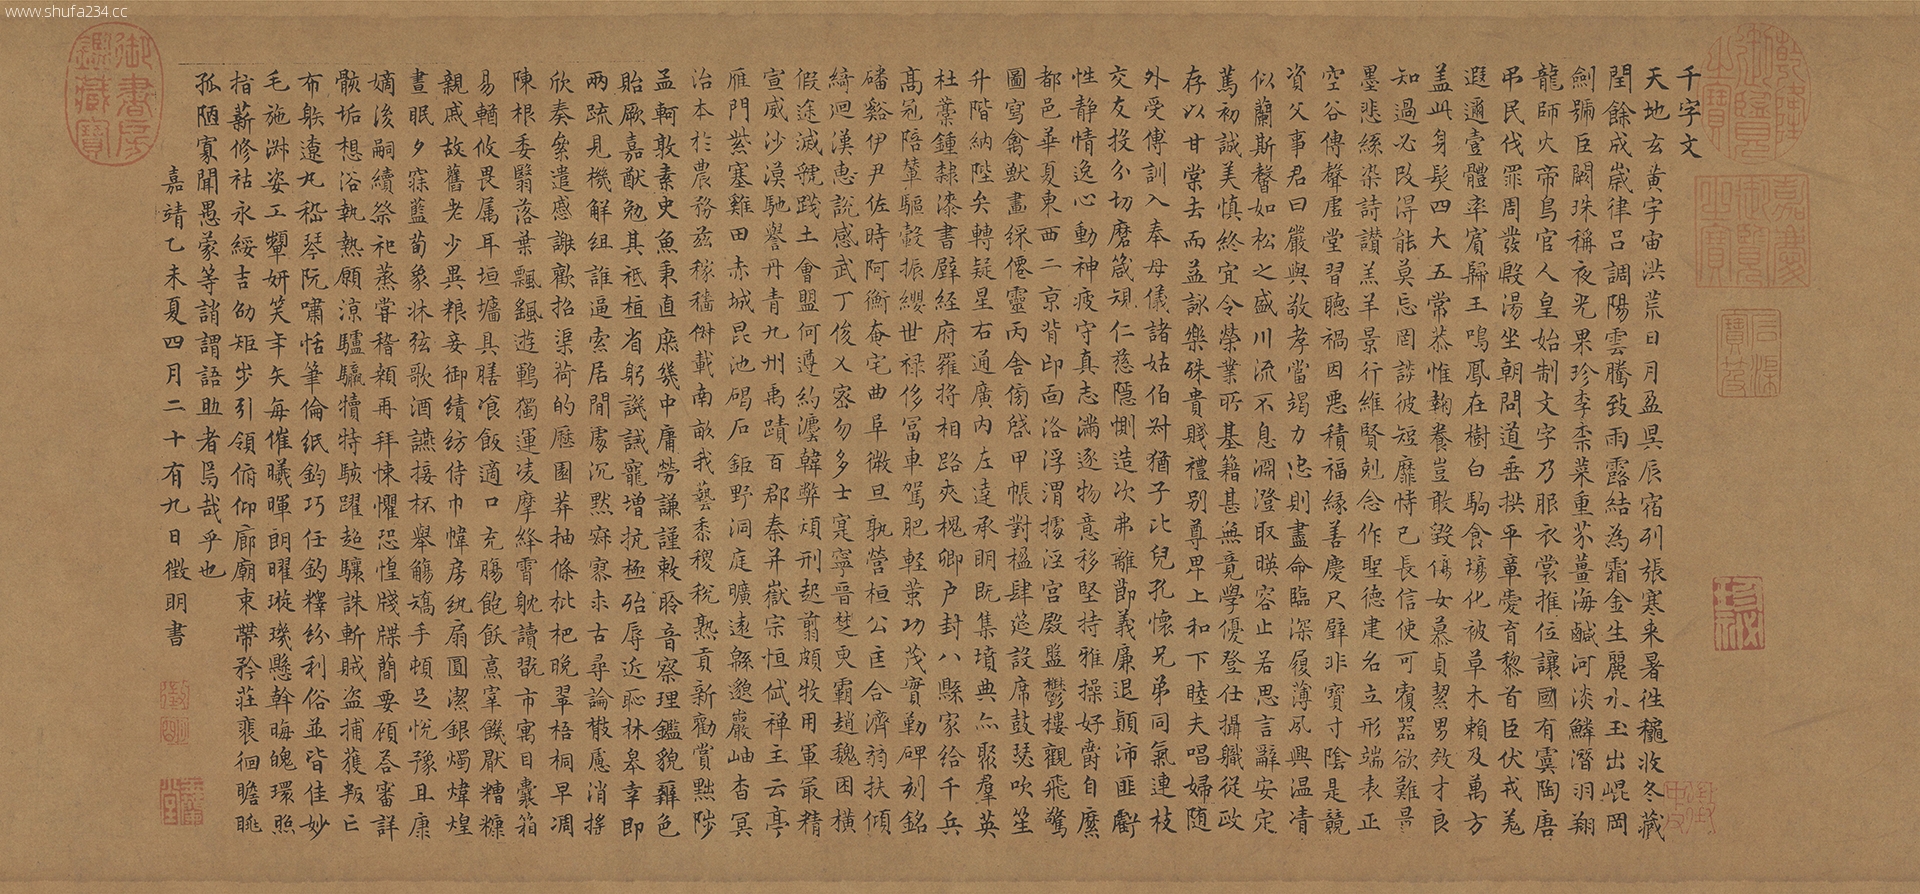 www.shufa234.cc
千字文
天地玄黃宇宙洪荒日月盈昃辰宿列張寒来暑往穐收冬藏
閏餘成歲律呂調陽雲騰致雨露結為霜金生麗水玉出崐岡
劍號巨闕珠稱夜光果珍李柰菜重芥薑海鹹河淡鱗潛羽翔
龍師火帝鳥官人皇始制文字乃服衣裳推位讓國有虞陶唐
弔民伐罪周發殷湯坐朝問道垂拱平章愛育黎首臣伏戎羌
遐邇壹體率賓歸王鳴鳳在樹白駒食場化被草木賴及萬方
盖此身髮四大五常恭惟鞠養豈敢毀傷女慕貞絜男效才良
知過必改得能莫忘罔談彼短靡恃己長信使可覆器欲難量
墨悲絲染詩讃羔羊景行維賢剋念作聖德建名立形端表正
空谷傳聲虛堂習聽禍因惡積福緣善慶尺璧非寶寸陰是競
資父事君曰嚴與敬孝當竭力忠則盡命臨深履薄夙興温凊
似蘭斯馨如松之盛川流不息淵澄取暎容止若思言辭安定
篤初誠美慎終宜令榮業所基籍甚無竟學優登仕攝職從政
存以甘棠去而益詠樂殊貴賤禮別尊卑上和下睦夫唱婦随
外受傅訓入奉母儀諸姑伯叔猶子比兒孔懷兄弟同氣連枝
交友投分切磨箴規仁慈隱惻造次弗離節義廉退顛沛匪虧
性静情逸心動神疲守真志滿逐物意移堅持雅操好爵自縻
都邑華夏東西二京背邙面洛浮渭據涇宮殿盤鬱樓觀飛驚
圖寫禽獸畫綵僊靈丙舍傍啓甲帳對楹肆筵設席鼓瑟吹笙
升階納陛弁轉疑星右通廣内左達承明既集墳典亦聚羣英
杜藁鍾隸漆書壁経府羅將相路夾槐卿户封八縣家給千兵
高冠陪輦驅轂振纓世祿侈富車駕肥軽策功茂實勒碑刻銘
磻谿伊尹佐時阿衡奄宅曲阜微旦孰營桓公匡合濟弱扶傾
綺迴漢惠說感武丁俊乂密勿多士寔寧晉楚更霸趙魏困横
假途滅虢踐土會盟何遵約灋韓弊煩刑起翦頗牧用軍最精
宣威沙漠馳譽丹青九州禹蹟百郡秦并嶽宗恒岱禅主云亭
雁門紫塞雞田赤城昆池碣石鉅野洞庭曠逺緜邈巖岫杳冥
治本於農務兹稼穡俶載南畝我藝黍稷稅熟貢新勸賞黜陟
孟軻敦素史魚秉直庶幾中庸勞謙謹敕聆音察理鑑貌辨色
貽厥嘉猷勉其祗植省躬譏誡寵增抗極殆辱近恥林皋幸即
兩疏見機解組誰逼索居閒處沉默寂寥求古尋論散慮消揺
欣奏絫遣慼謝歡招渠荷的歷園莽抽條枇杷晚翠梧桐早凋
陳根委翳落葉飄颻遊鵾獨運凌摩絳霄躭讀翫市寓目囊箱
易輶攸畏属耳垣墻具膳飡飯適口充腸飽飫烹宰饑厭糟糠
親戚故舊老少異粮妾御績紡侍巾幃房紈扇圓潔銀燭煒煌
晝眠夕寐藍荀象牀弦歌酒讌接杯舉觴矯手頓足悅豫且康
嫡後嗣續祭祀蒸甞稽顙再拜悚懼恐惶牋牒簡要顧荅審詳
骸垢想浴執熱願凉驢騾犢特駭躍超驤誅斬賊盗捕獲叛亡
布射遼丸嵇琴阮嘯恬筆倫紙鈞巧任釣釋紛利俗並皆佳妙
毛施淑姿工顰妍笑年矢每催曦暉朗曜璇璣懸斡晦魄環照
指薪修祜永綏吉劭矩步引領俯仰廊廟束帶矜莊裵徊瞻眺
孤陋寡聞愚蒙等誚謂語助者焉哉乎也
嘉靖乙未夏四月二十有九日徵明書